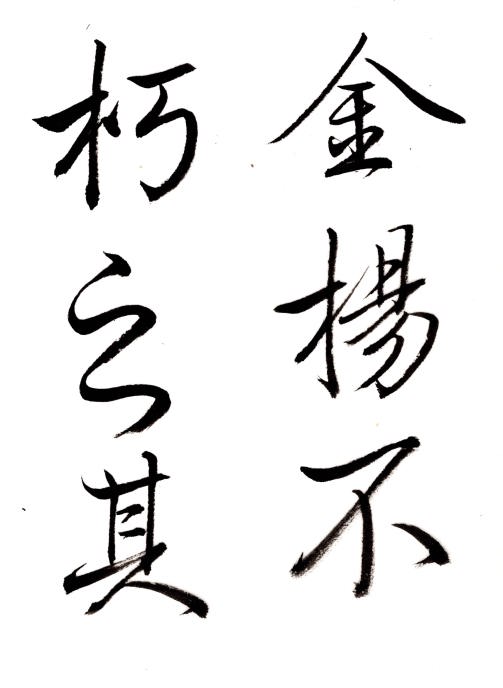 金揚不
朽之其